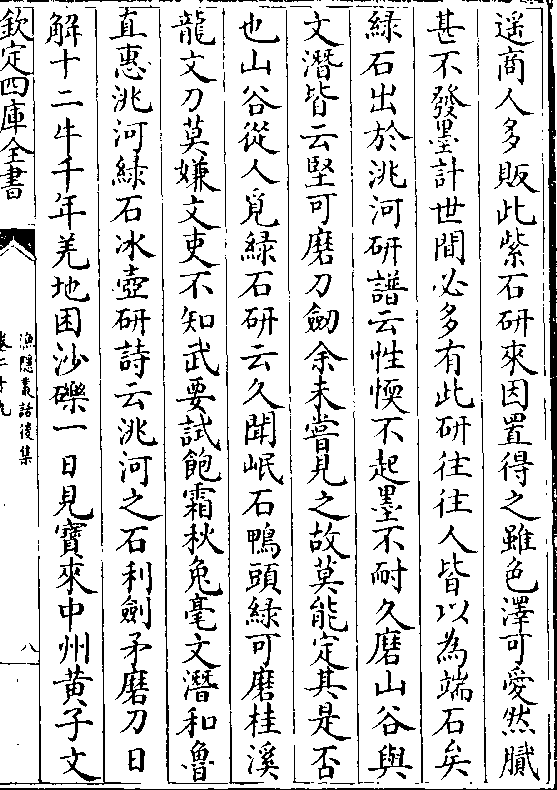 遥商人多販此紫石研來因置得之雖色澤可愛然膩
甚不發墨計世間必多有此研往往人皆以為端石矣
緑石出於洮河研譜云性愞不起墨不耐久磨山谷與
文潛皆云堅可磨刀劒余未嘗見之故莫能定其是否
也山谷從人覓緑石研云久聞岷石鴨頭緑可磨桂溪
龍文刀莫嫌文吏不知武要試飽霜秋兔毫文潛和魯
直惠洮河緑石冰壺研詩云洮河之石利劒矛磨刀日
解十二牛千年羌地困沙礫一日見寶來中州黄子文
欽定四庫全書
漁隱叢話後集
卷二十九
八